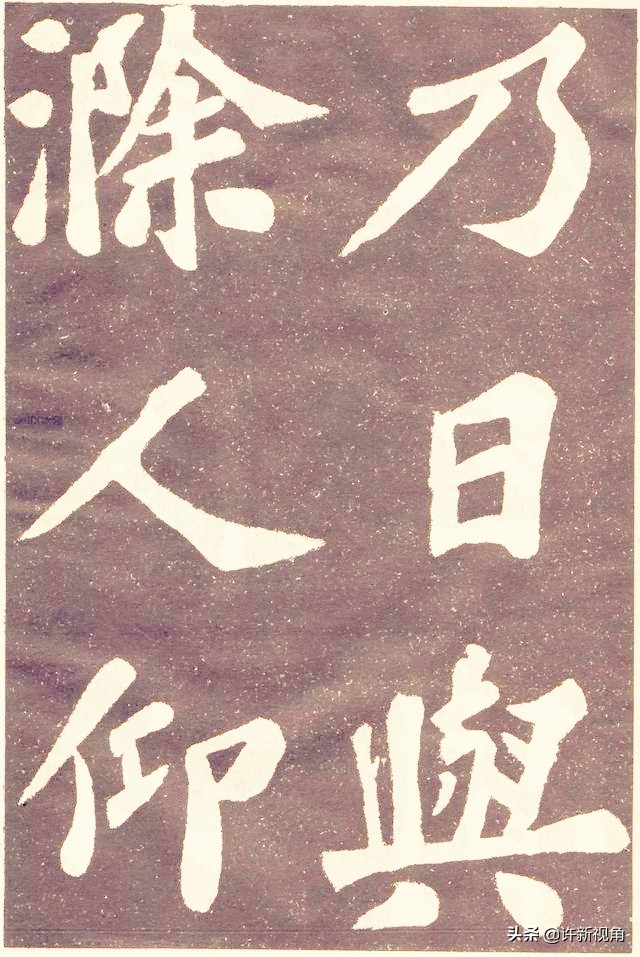 乃日與
滁人仰
头条 @许新视角